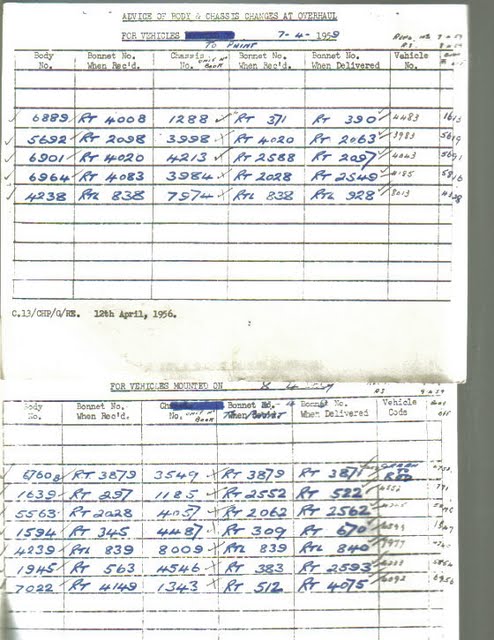 ADVICE OF BODY & CHASSIS CHANGES AT OVERHAUL
FOR VEHICLES 7-4-1959
TO PAINT
Body No. Bonnet No. When Rec'd. Chassis No. UNIT No BOOK Bonnet No. When Rec'd. Bonnet No. When Delivered Vehicle No.
6889 RT 4008 1288 RT 371 RT 390 4483 1613
5692 RT 2098 3998 RT 4020 RT 2063 3983 5619
6901 RT 4020 4213 RT 2588 RT 2097 4043 5691
6964 RT 4083 3984 RT 2028 RT 2549 4185 5816
4238 RTL 838 7974 RTL 838 RTL 928 8013 4228
C.13/CHP/G/RE. 12th April, 1956.
FOR VEHICLES MOUNTED ON
Body No. Bonnet No. When Rec'd. No. UNIT No BOOK Bonnet No. Bonnet No. When Delivered Vehicle Code
6760 RT 3879 3549 RT 3879 RT 3871 GREEN TO RED
1639 RT 297 1185 RT 2552 RT 522
5563 RT 2028 4057 RT 2062 RT 2562
1594 RT 345 4487 RT 309 RT 670
4239 RTL 839 8009 RTL 839 RTL 840
1945 RT 563 4546 RT 383 RT 2593
7022 RT 4149 1343 RT 512 RT 4075